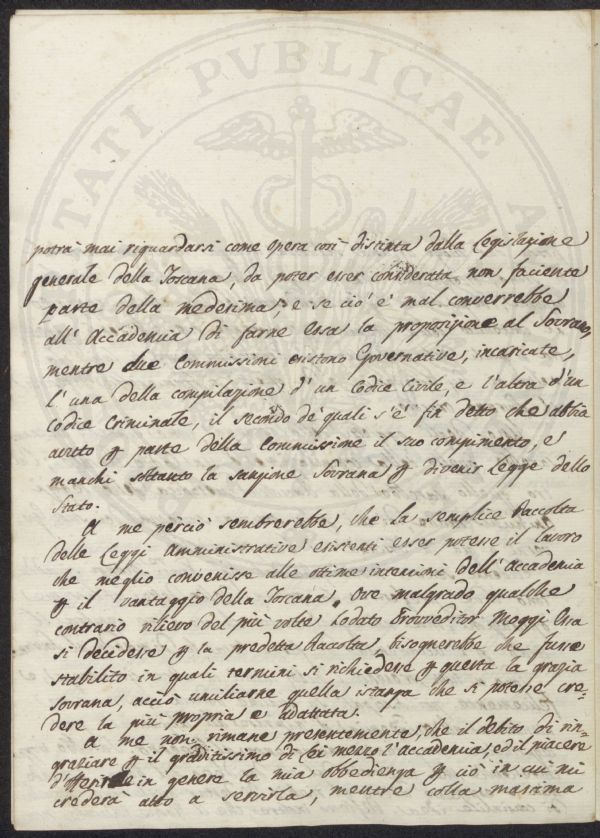 TATI PVBLICAE
potrà mai riguardarsi come opera così distinta dalla Legislazione
generale della Toscana, da poter esser considerata non faciente
parte della medesima; e se ciò è mal converrebbe
all' Accademia di farne essa la proposizione al Sovrano,
mentre due Commissioni esistono Governative, incaricate,
l' una della compilazione d' un Codice Civile e l'altra d'un
Codice Criminale, il secondo de quali s'è fin detto che abbia
avuto p parte della Commissione il suo compimento, e
manchi soltanto la sanzione Sovrana p divenir Legge dello
Stato.
A me perciò sembrerebbe, che la semplice Raccolta
delle Leggi Amministrative esistenti esser potesse il lavoro
che meglio convenisse alle ottime intenzioni dell' Accademia
p il vantaggio della Toscana. Ove malgrado qualche
contrario rilievo del più volte Lodato Provveditor Moggi Essa
si decidesse p la predetta Raccolta, bisognerebbe che fusse
stabilito in quali termini si richiedesse p questa la grazia
Sovrana, acciò umiliarne quella istanza che si potesse cre=
dere la più propria e adattata.
A me non rimane presentemente, che il debito di rin=
graziare p il graditissimo di Lei mezzo l'Accademia, ed il piacere
d'offerirle in genere la mia obbedienza p ciò in cui mi
crederà atto a servirla, mentre colla massima